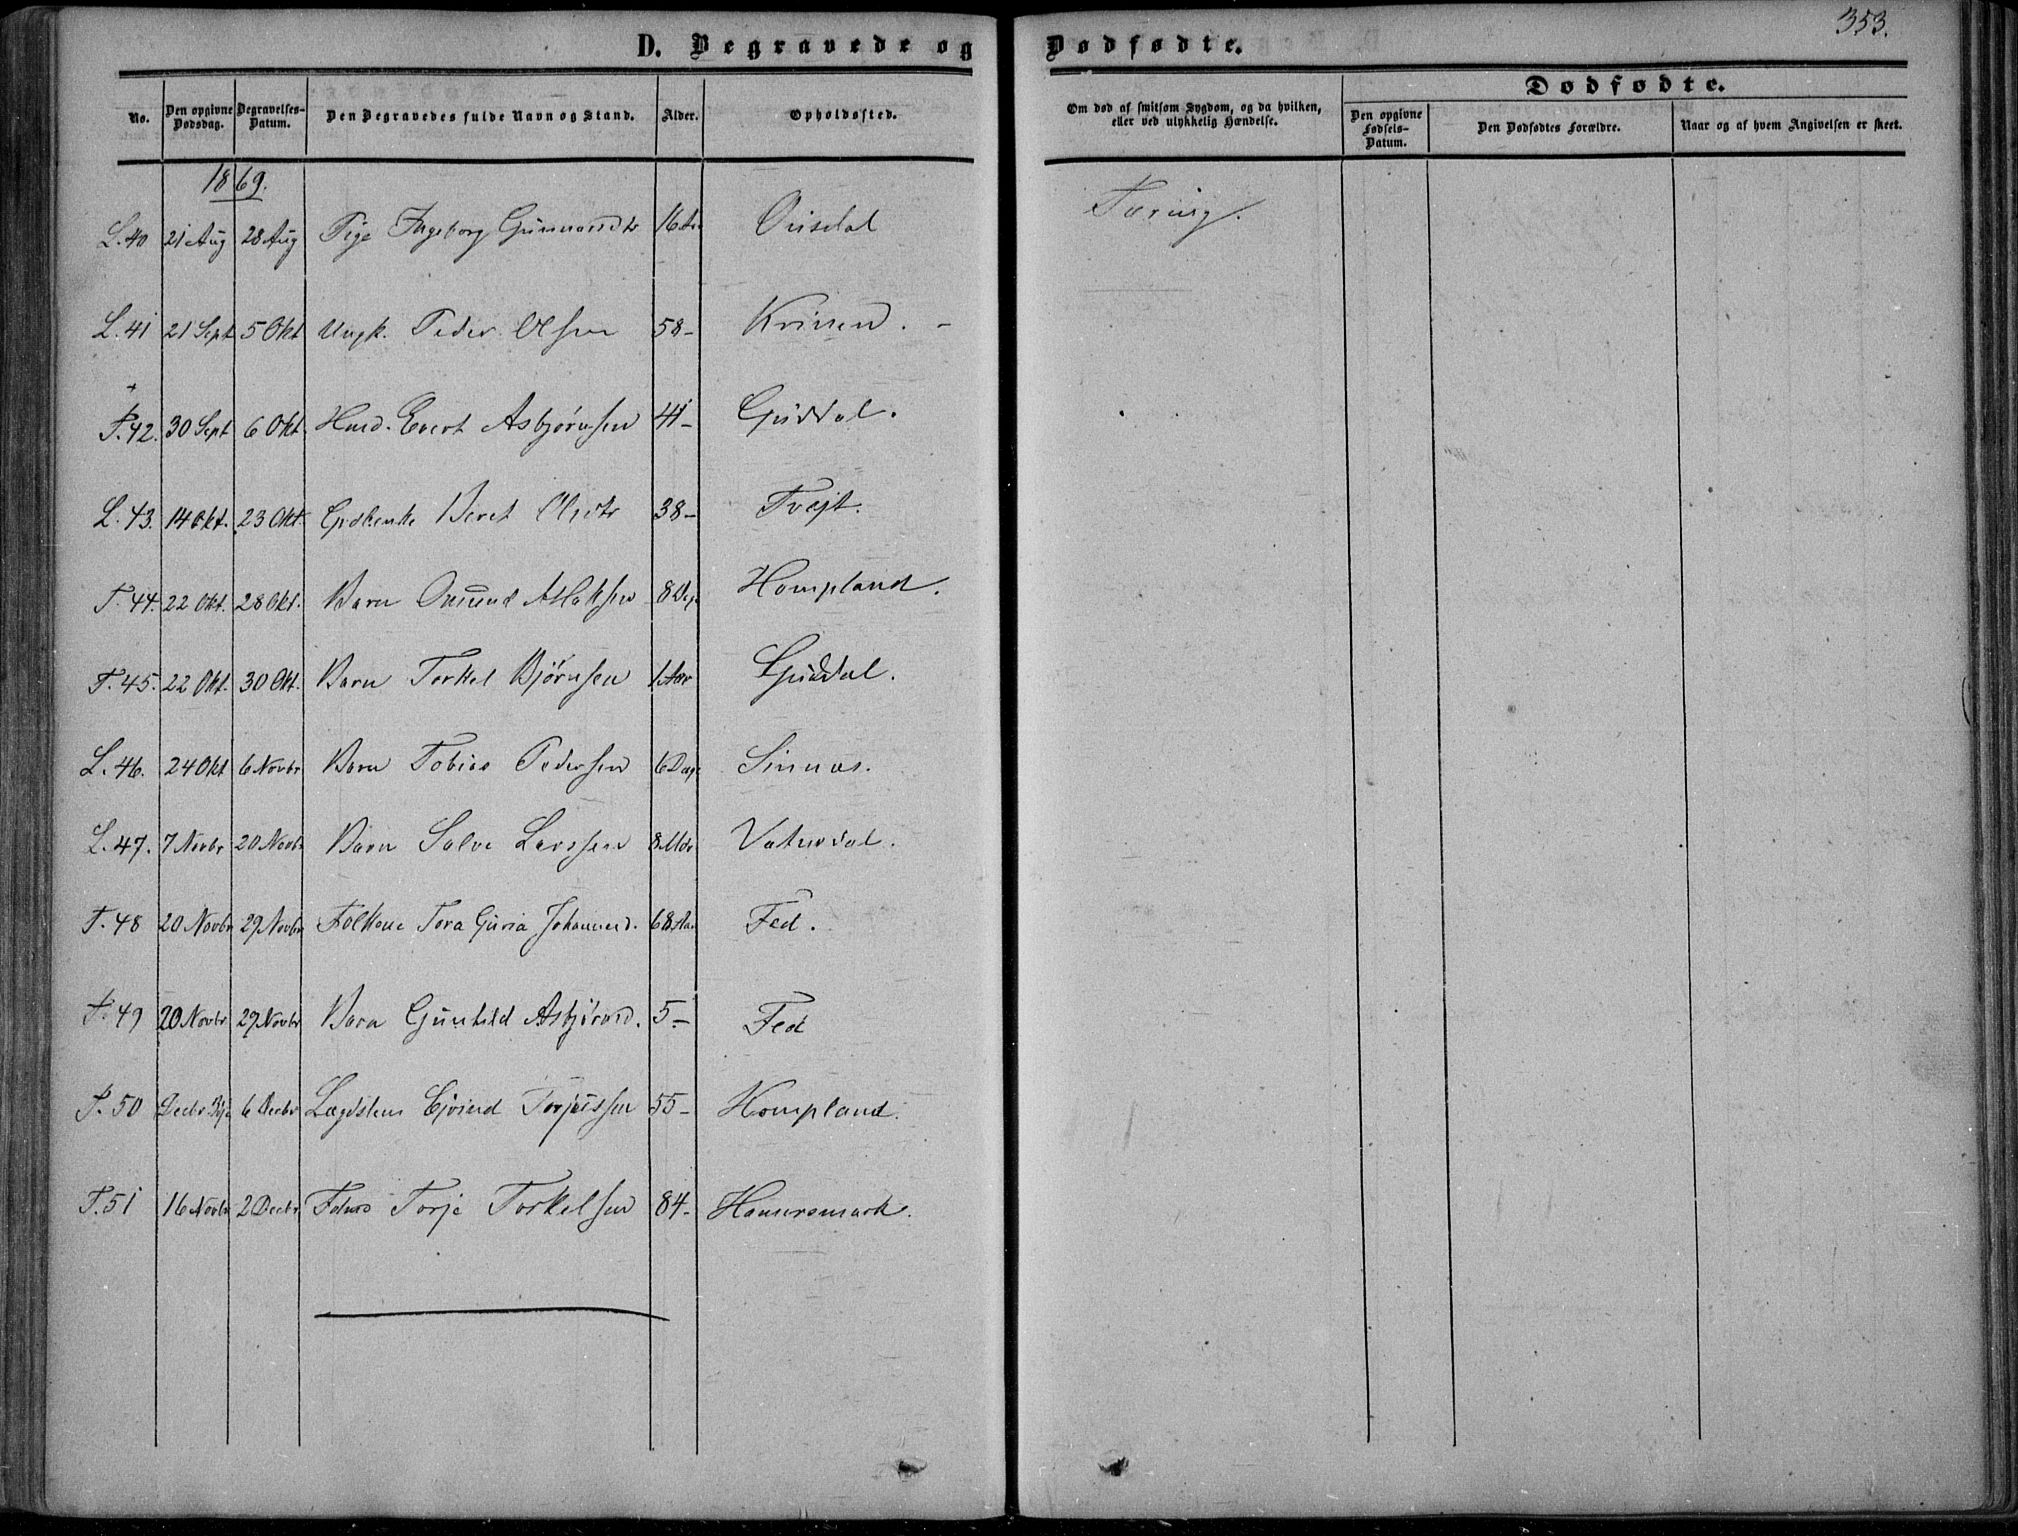 353.
D. Begravede og Dødfødte.
No. Den opgivne Dødsdag. Begravelses-Datum. Den Begravedes fulde Navn og Stand. Alder. Opholdssted. Om død af smitsom Sygdom, og da hvilken, eller ved ulykkelig Hændelse. Dødfødte. Den opgivne Fødsels-Datum. Den Dødfødtes Forældre. Naar og af hvem Angivelsen er skeet.
1869.
L. 40 21 Aug 28 Aug Pige Ingeborg Gunvarsdtr 16 Aar Ousdal Tæring.
L. 41 21 Sept 5 Okt Ungk. Peder Olsen 58 -
F. 42. 30 Sept 6 Okt. Husd. Evert Asbjørnsen 41 - Guddal.
L. 43. 14 Okt. 23 Okt. Beret Olsdtr 38 - Tvejt.
F. 44. 22 Okt. 28 Okt. Barn Omund Aslaksen 8 Dage Hompland.
F. 45. 22 Okt. 30 Okt. Barn Torkel Bjørnsen 1 Aar Guddal.
L. 46. 24 Okt 6 Novbr Barn Tobias Pedersen 6 Dage Sinnæs.
L. 47. 7 Novbr 20 Novbr Barn Salve Larssen 8 Mdr Vatnedal.
F. 48 20 Novbr 29 Novbr Folkone Tora Guria Johannesd. 68 Aar Fed.
F. 49 20 Novbr 29 Novbr Barn Gunhild Asbjørnsd. 5 - Fed
F. 50 Decbr 6 Decbr Lægdslem Ejvind Torjussen 55 - Hompland.
F. 51 16 Novbr 2 Decbr Torje Torkelsen 84 - Hamremark.